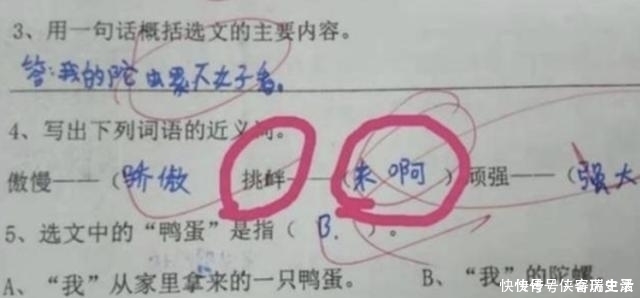 3、用一句话概括选文的主要内容。
答:我的陀
4、写出下列词语的近义词。
傲慢——（骄傲 挑衅——（来啊）顽强——（强大
5、选文中的“鸭蛋”是指（B.）。
A、“我”从家里拿来的一只鸭蛋。 B、“我”的陀螺